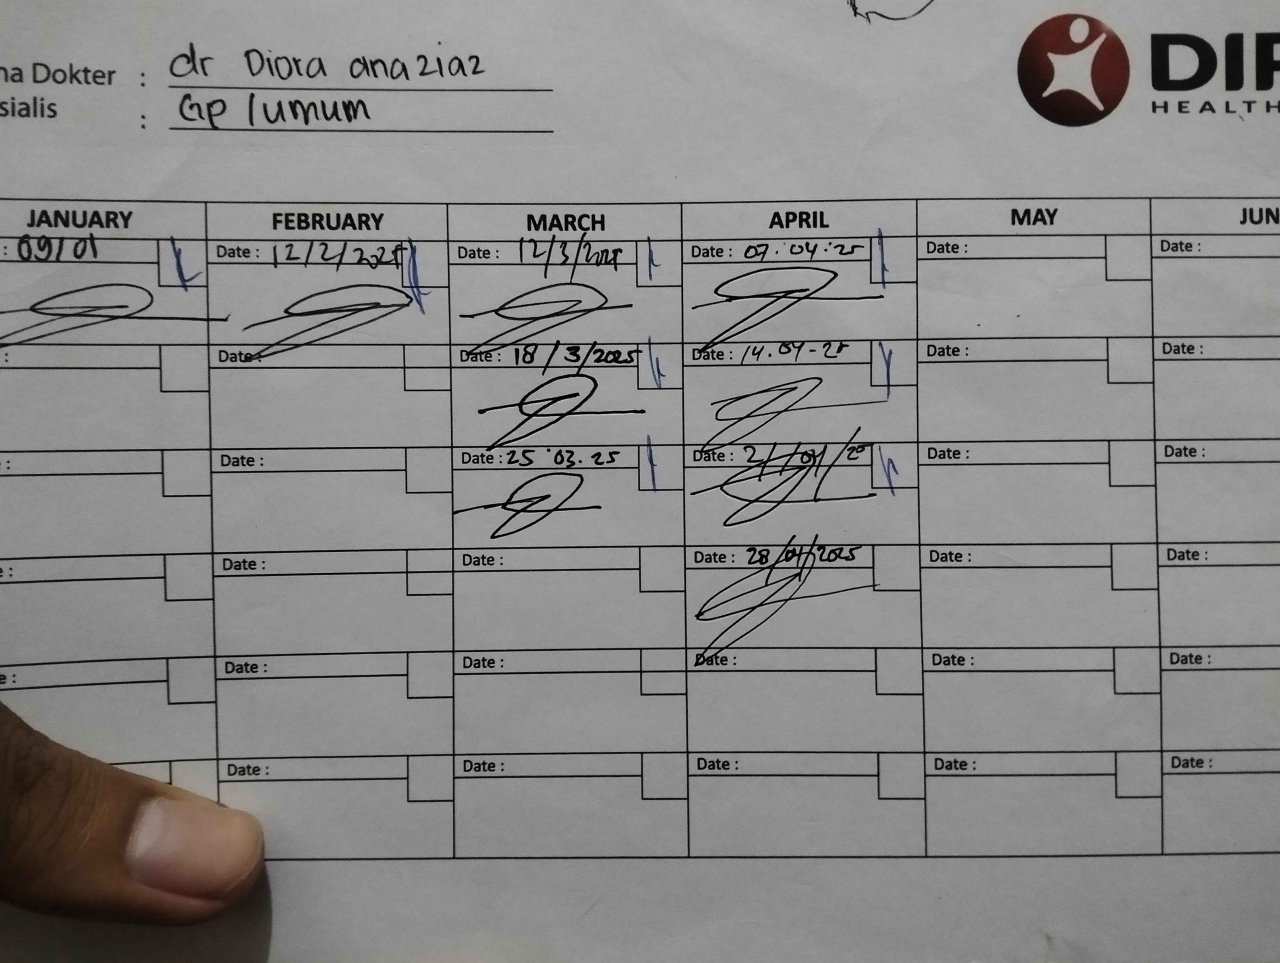 na Dokter : dr Diora anaziaz
sialis : Gp / umum
DIP
HEALTH
JANUARY FEBRUARY MARCH APRIL MAY JUN
: 09/01 Date : 12/2/2025 Date : 12/3/2025 Date : 07.04.25 Date : Date :
: Date : Date : 18/3/2025 Date : 14.04-25 Date : Date :
: Date : Date : 25.03.25 Date : 21/04/25 Date : Date :
e : Date : Date : Date : 28/04/2025 Date : Date :
e : Date : Date : Date : Date : Date :
Date : Date : Date : Date : Date :